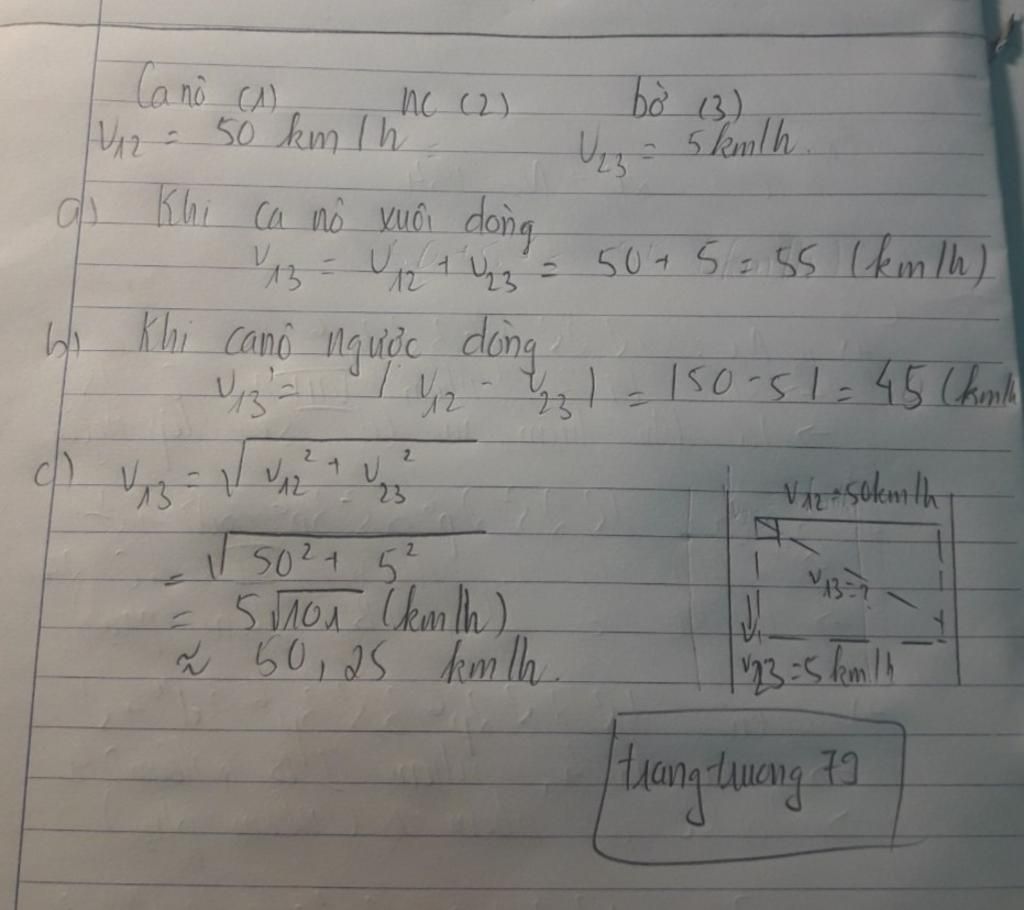 Ca nô (1) nc (2) bờ (3)
v₁₂ = 50 km/h v₂₃ = 5km/h.
a) Khi ca nô xuôi dòng
v₁₃ = v₁₂ + v₂₃ = 50 + 5 = 55 (km/h)
b) Khi canô ngược dòng
v₁₃' = | v₁₂ - v₂₃ | = |50 - 5| = 45 (km/h
c) v₁₃ = √(v₁₂² + v₂₃²)
= √(50² + 5²)
= 5√101 (km/h)
≈ 50,25 km/h.
v₁₂ = 50km/h
v₁₃ = ?
v₂₃ = 5 km/h
trangtruong 79